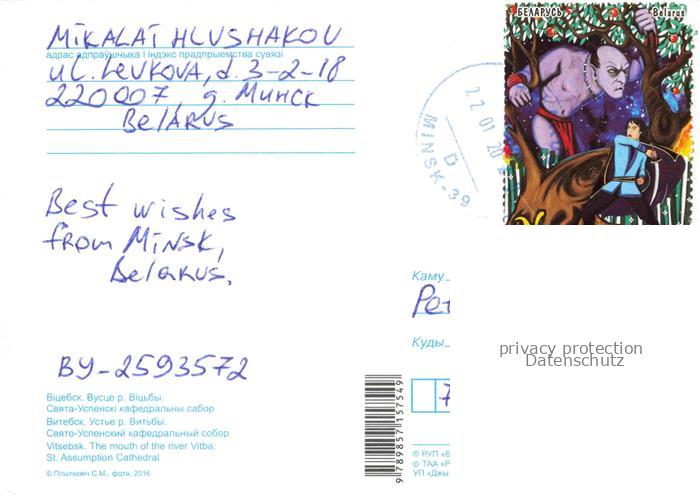 MIKALAI HLUSHAKOU
адрас адпраўшчыка і індэкс прадпрыемства сувязі
ul. Levkova, d. 3-2-18
220007 g. Минск
Belarus
Best wishes
from Minsk,
Belarus.
BY-2593572
Віцебск. Вусце р. Віцьбы.
Свята-Успенскі кафедральны сабор
Витебск. Устье р. Витьбы.
Свято-Успенский кафедральный собор
Vitsebsk. The mouth of the river Vitba.
St. Assumption Cathedral
© Плыткевіч С.М., фота, 2016
БЕЛАРУСЬ Belarus
22 01 20
D
MINSK-39
Каму
Pe
Куды
privacy protection
Datenschutz
7
9789857157549
© РУП «Б
© ТАА «Р
УП «Джы